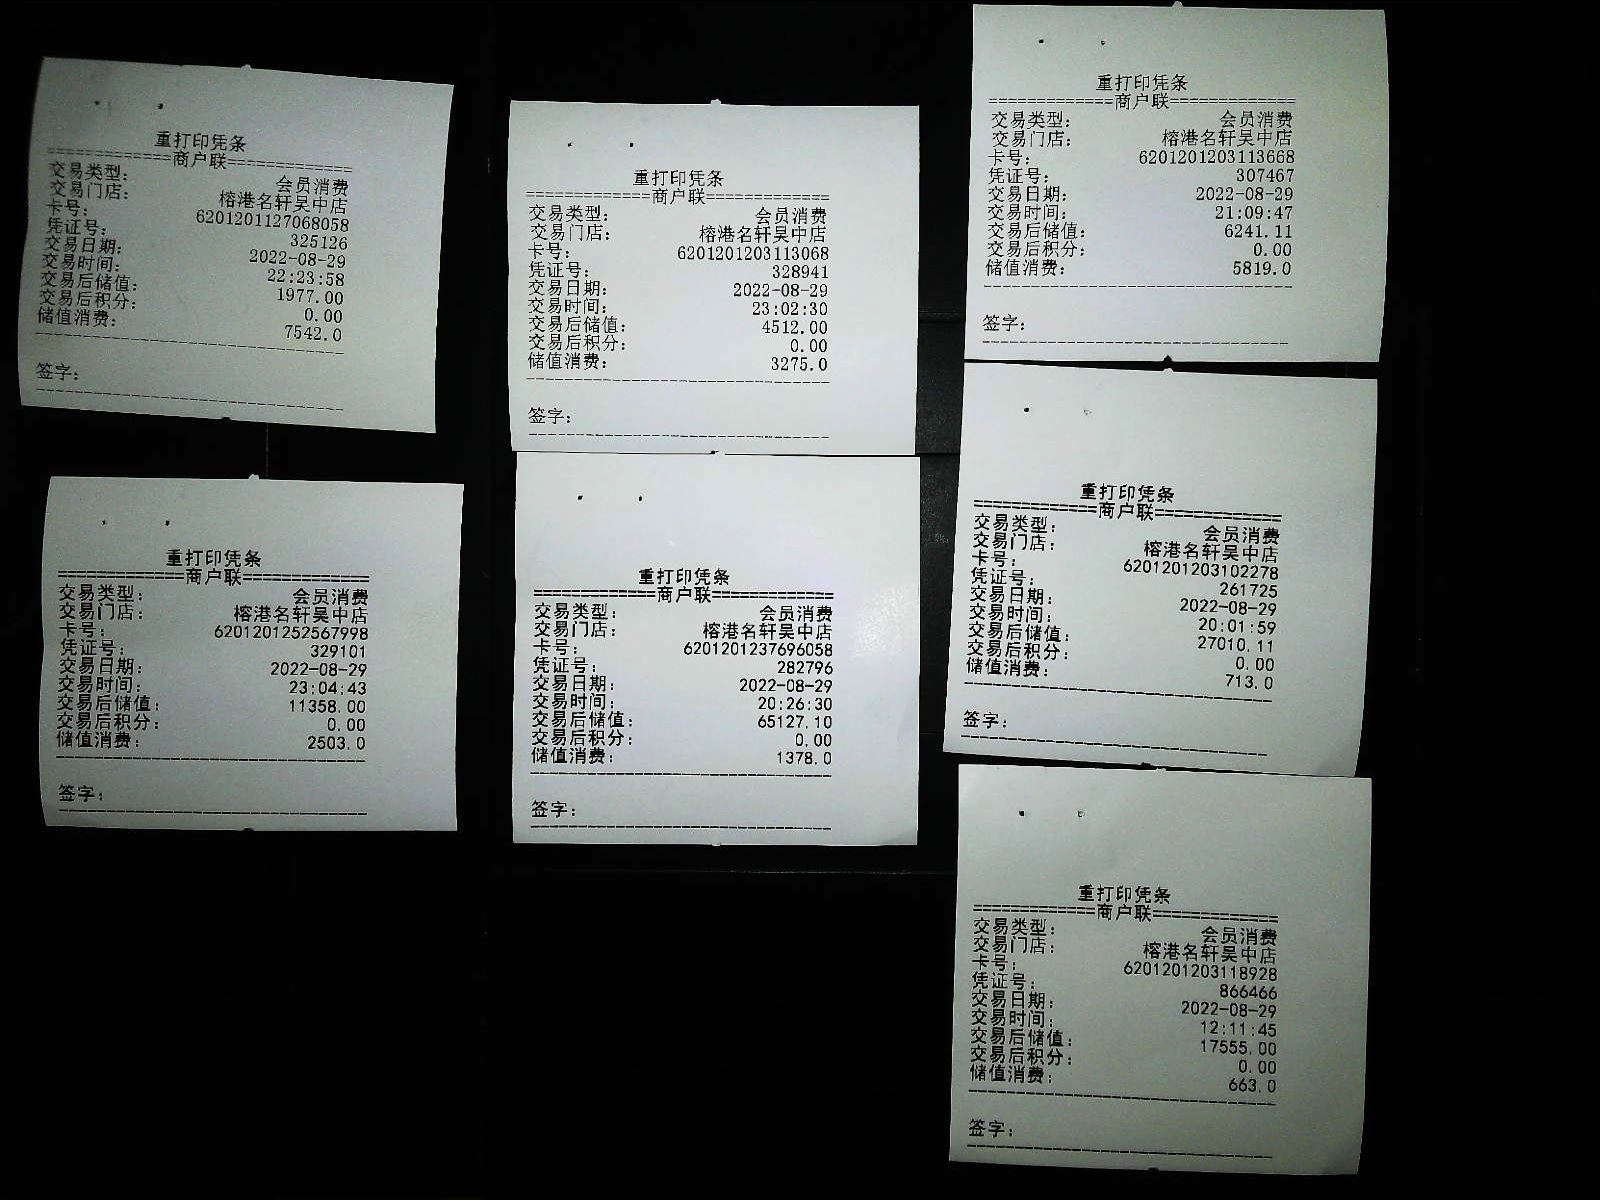 重打印凭条
=============商户联=============
交易类型: 会员消费
交易门店: 榕港名轩吴中店
卡号: 6201201127068058
凭证号: 325126
交易日期: 2022-08-29
交易时间: 22:23:58
交易后储值: 1977.00
交易后积分: 0.00
储值消费: 7542.0
--------------------------------
签字:
--------------------------------
重打印凭条
=============商户联=============
交易类型: 会员消费
交易门店: 榕港名轩吴中店
卡号: 6201201252567998
凭证号: 329101
交易日期: 2022-08-29
交易时间: 23:04:43
交易后储值: 11358.00
交易后积分: 0.00
储值消费: 2503.0
--------------------------------
签字:
--------------------------------
重打印凭条
=============商户联=============
交易类型: 会员消费
交易门店: 榕港名轩吴中店
卡号: 6201201203113068
凭证号: 328941
交易日期: 2022-08-29
交易时间: 23:02:30
交易后储值: 4512.00
交易后积分: 0.00
储值消费: 3275.0
--------------------------------
签字:
--------------------------------
重打印凭条
=============商户联=============
交易类型: 会员消费
交易门店: 榕港名轩吴中店
卡号: 6201201237696058
凭证号: 282796
交易日期: 2022-08-29
交易时间: 20:26:30
交易后储值: 65127.10
交易后积分: 0.00
储值消费: 1378.0
--------------------------------
签字:
--------------------------------
重打印凭条
=============商户联=============
交易类型: 会员消费
交易门店: 榕港名轩吴中店
卡号: 6201201203113668
凭证号: 307467
交易日期: 2022-08-29
交易时间: 21:09:47
交易后储值: 6241.11
交易后积分: 0.00
储值消费: 5819.0
--------------------------------
签字:
--------------------------------
重打印凭条
=============商户联=============
交易类型: 会员消费
交易门店: 榕港名轩吴中店
卡号: 6201201203102278
凭证号: 261725
交易日期: 2022-08-29
交易时间: 20:01:59
交易后储值: 27010.11
交易后积分: 0.00
储值消费: 713.0
--------------------------------
签字:
--------------------------------
重打印凭条
=============商户联=============
交易类型: 会员消费
交易门店: 榕港名轩吴中店
卡号: 6201201203118928
凭证号: 866466
交易日期: 2022-08-29
交易时间: 12:11:45
交易后储值: 17555.00
交易后积分: 0.00
储值消费: 663.0
--------------------------------
签字:
--------------------------------